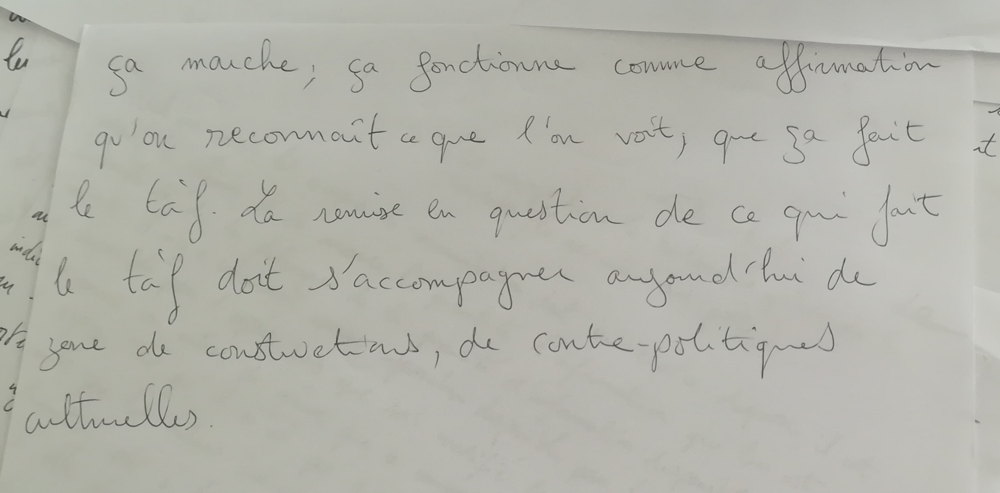 ça marche, ça fonctionne comme affirmation
qu'on reconnaît ce que l'on voit, que ça fait
le tàf. La remise en question de ce qui fait
le tàf doit s'accompagner aujourd'hui de
zone de constructions, de contre-politiques
culturelles.